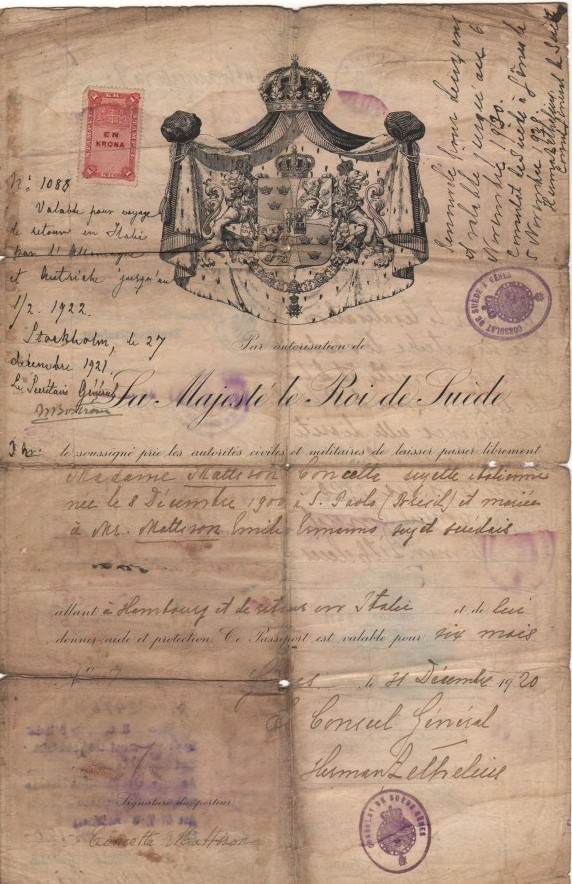 EN
KRONA
No: 1088
Valable pour voyage
de retour en Italie
par l'Allemagne
et Autriche jusqu'au
1/2. 1922.
Stockholm, le 27
décembre 1921.
Le Secrétaire Général
pour deux ans
et valable jusqu'au 6
Novembre 1930.
Consulat de Suède à Gênes le
5 Novembre 1928
Consul de Suède
CONSULAT DE SUÈDE À GÊNES
Par autorisation de
Sa Majesté le Roi de Suède
le soussigné prie les autorités civiles et militaires de laisser passer librement
Madame Mattison Concetta sujette italienne
née le 8 Décembre 1900 à S. Paolo (Brésil) et mariée
à Mr. Mattison Emilio Erminio sujet suédois
allant à Hambourg et de retour en Italie et de lui
donner aide et protection. Ce Passeport est valable pour six mois
Gênes le 31 Décembre 1920
Le Consul Général
Herman Zethelius
Signature du porteur
Concetta Mattison
CONSULAT DE SUÈDE GÊNES